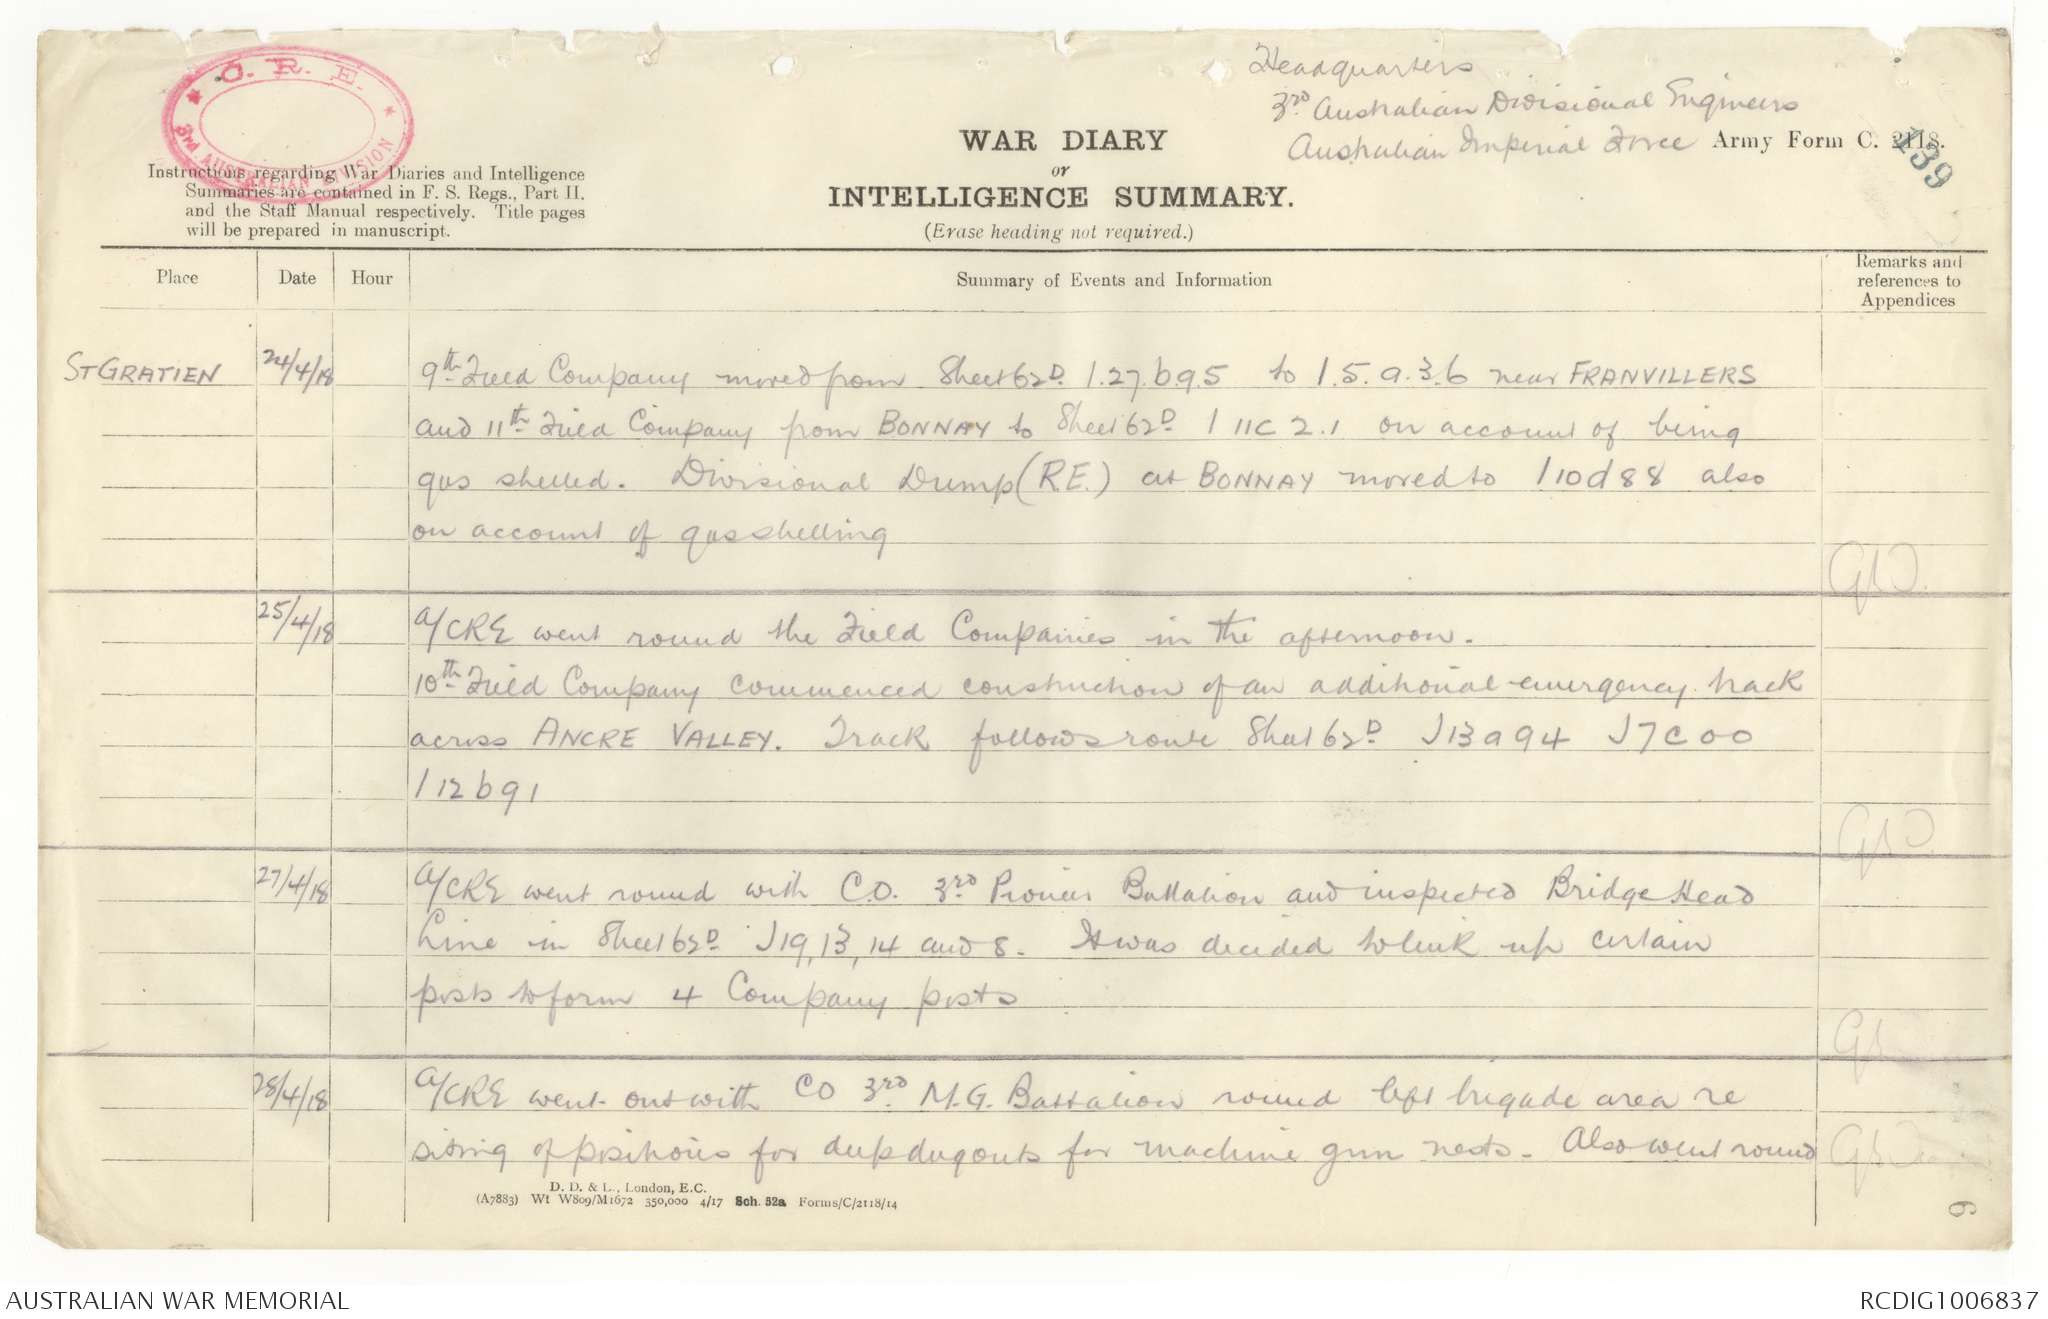 C. R. E.
3rd AUSTRALIAN DIVISION
Headquarters
3rd Australian Divisional Engineers
Australian Imperial Force
Army Form C. 2118.
139
WAR DIARY
or
INTELLIGENCE SUMMARY.
(Erase heading not required.)
Instructions regarding War Diaries and Intelligence
Summaries are contained in F. S. Regs., Part II.
and the Staff Manual respectively. Title pages
will be prepared in manuscript.
Place Date Hour Summary of Events and Information Remarks and references to Appendices
ST GRATIEN 24/4/18 9th Field Company moved from Sheet 62D. I.27.b.9.5 to I.5.a.3.6 near FRANVILLERS
and 11th Field Company from BONNAY to Sheet 62D I 11c 2.1 on account of being
gas shelled. Divisional Dump (R.E.) at BONNAY moved to I 10d 88 also
on account of gas shelling
25/4/18 A/CRE went round the Field Companies in the afternoon.
10th Field Company commenced construction of an additional emergency track
across ANCRE VALLEY. Track follows route Sheet 62D J 13 a 94 J 7 c 00
I 12 b 91
27/4/18 A/CRE went round with C.O. 3rd Pioneer Battalion and inspected Bridge Head
Line in Sheet 62D J 19, 13, 14 and 8. It was decided to link up certain
posts to form 4 Company posts
28/4/18 A/CRE went out with CO 3rd M.G. Battalion round left brigade area re
siting of positions for deep dugouts for machine gun nests. Also went round
D. D. & L., London, E.C.
(A7883) Wt W809/M1672 350,000 4/17 Sch. 52a Forms/C/2118/14
AUSTRALIAN WAR MEMORIAL
RCDIG1006837